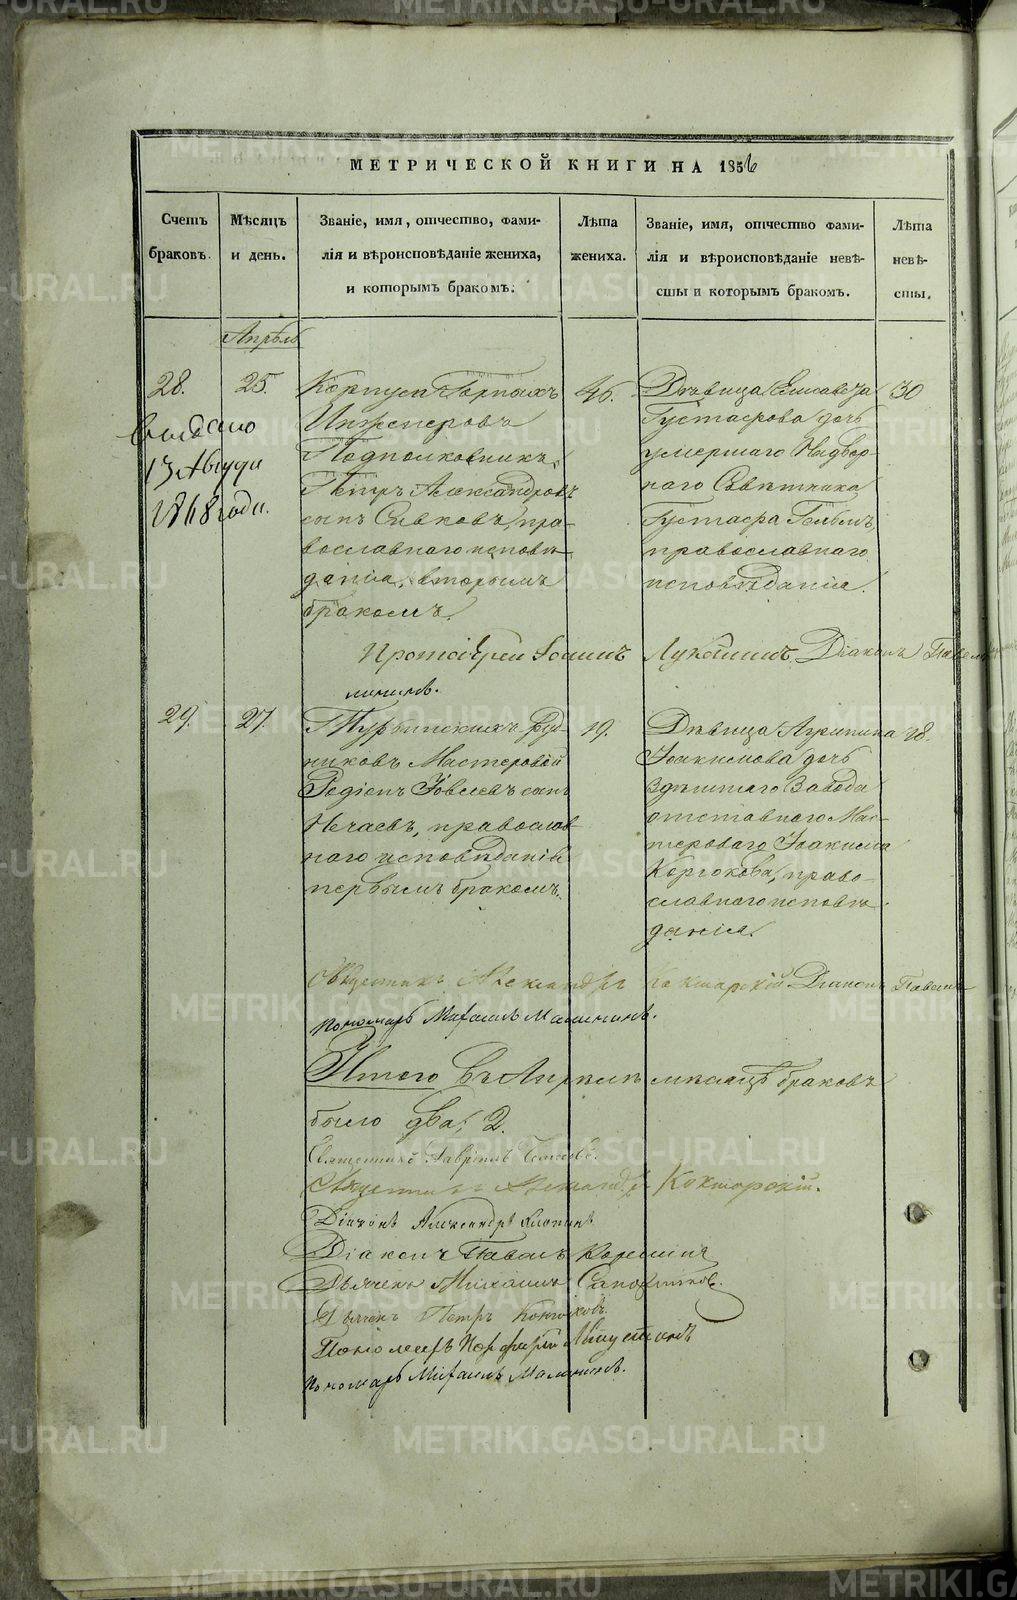 МЕТРИЧЕСКОЙ КНИГИ НА 1856
Счетъ браковъ.
Мѣсяцъ и день.
Званіе, имя, отчество, фами-
лія и вѣроисповѣданіе жениха,
и которымъ бракомъ.
Лѣта
жениха.
Званіе, имя, отчество фами-
лія и вѣроисповѣданіе невѣ-
сты и которымъ бракомъ.
Лѣта
невѣ-
сты.
Апрѣль
28.
25.
Корпуса Горныхъ
Инженеровъ
Подполковникъ,
Петръ Александровъ
сынъ Сивковъ, пра-
вославнаго исповѣ-
данія, вторымъ
бракомъ.
46.
Дѣвица Елисавета
Густафова дочь
умершаго Надвор-
наго Совѣтника
Густафа
православнаго
исповѣданія.
30
Выдано
13 Августа
1868 года.
Протоіерей Іоаннъ Лукканинъ. Діаконъ Павелъ
29.
27.
Турьинскихъ Руд-
никовъ Мастеровой
Родіонъ Іовлевъ сынъ
Нечаевъ, православ-
наго исповѣданія
первымъ бракомъ.
19.
Дѣвица Агрипина
Іоакимова дочь
здѣшняго Завода
отставнаго Мас-
тероваго Іоакима
православнаго исповѣ-
данія.
18.
Священникъ Александръ Кокшарскій Діаконъ Павелъ
Пономарь Михаилъ Малининъ.
Итого въ Апрѣлѣ мѣсяцѣ браковъ
было два, 2.
Священникъ Гавріилъ
Священникъ Александръ Кокшарскій.
Діаконъ Александръ
Діаконъ Павелъ
Дьячекъ Михаилъ Сапожниковъ.
Дьячекъ Петръ
Пономарь Порфирій
Пономарь Михаилъ Малининъ.
METRIKI.GASO-URAL.RU